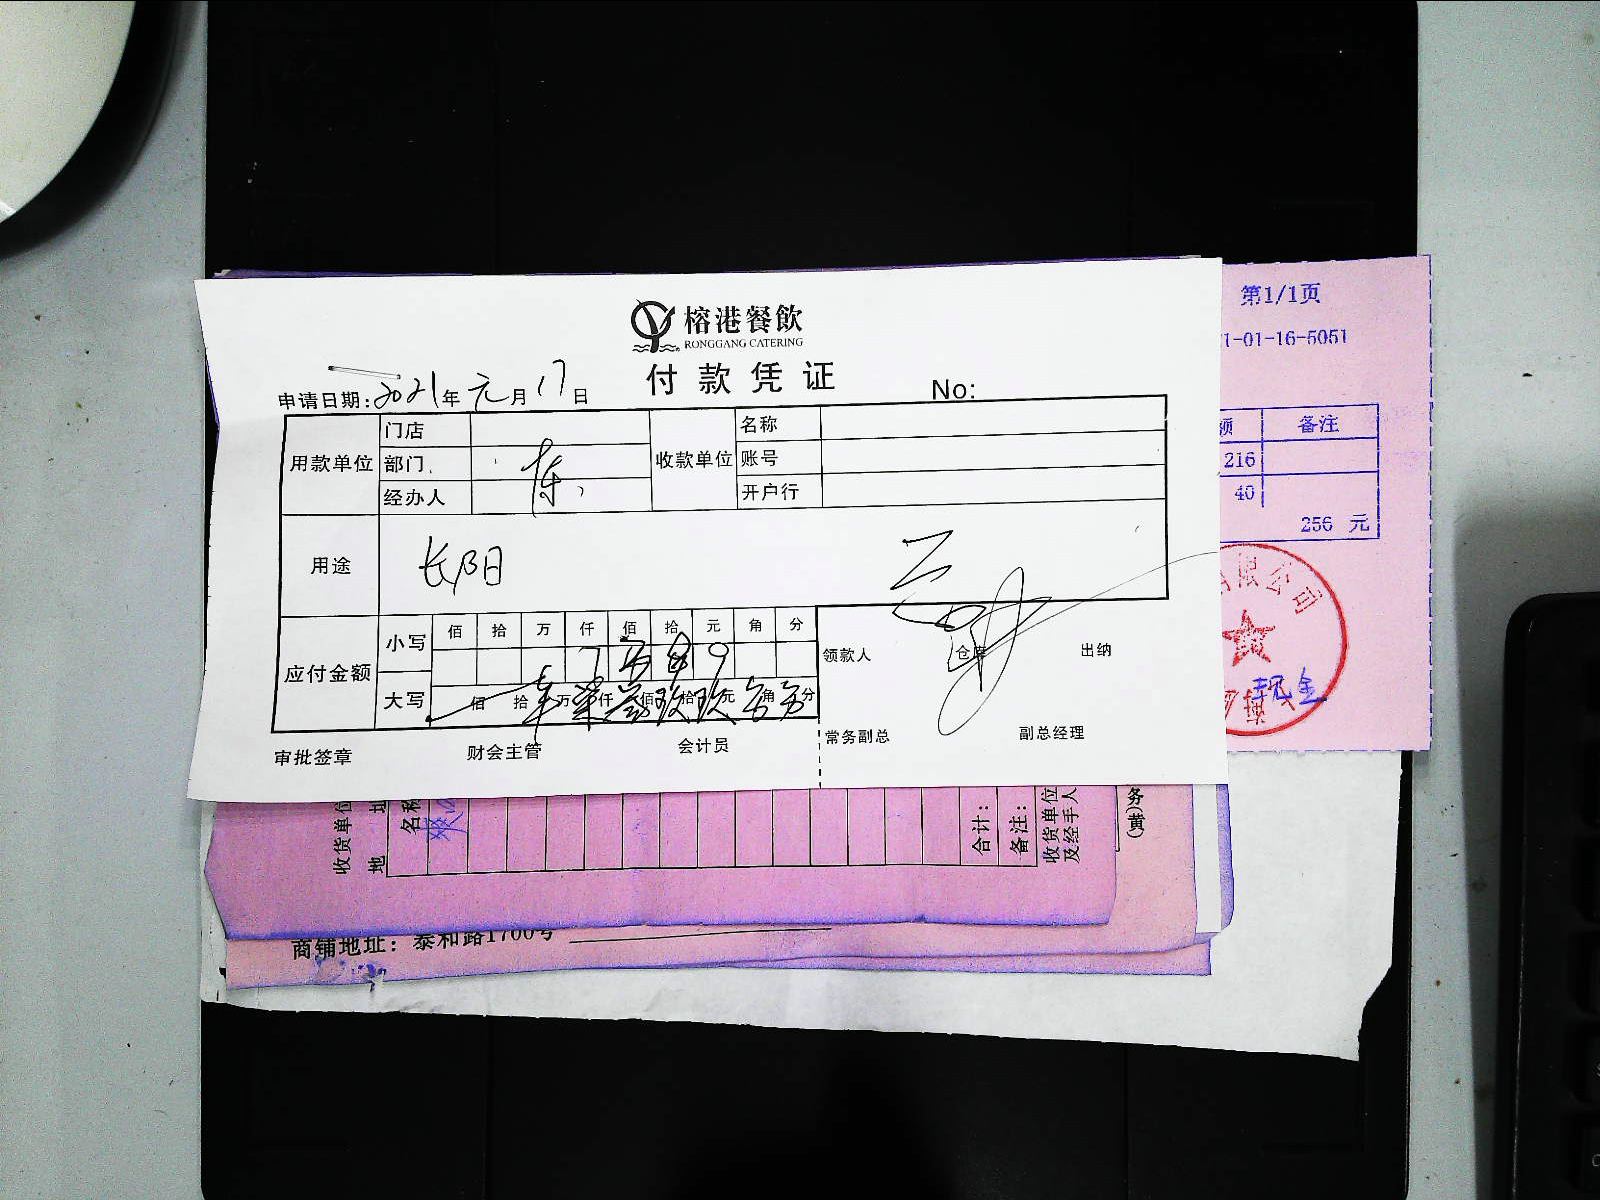 榕港餐飲
RONGGANG CATERING
付款凭证
申请日期:2021年元月17日
No:
用款单位
门店
部门
经办人
陈
收款单位
名称
账号
开户行
用途
长阳
应付金额
小写
佰 拾 万 仟 佰 拾 元 角 分
7 9
大写
佰 拾 万 仟 佰 拾 元 角 分
领款人
仓库
出纳
审批签章
财会主管
会计员
常务副总
副总经理
第1/1页
1-01-16-5051
额 备注
216
40
256 元
限公司
现金
收货单位
地 址
名称
合计:
备注:
收货单位
及经手人
务(黄)
商铺地址:泰和路1700号